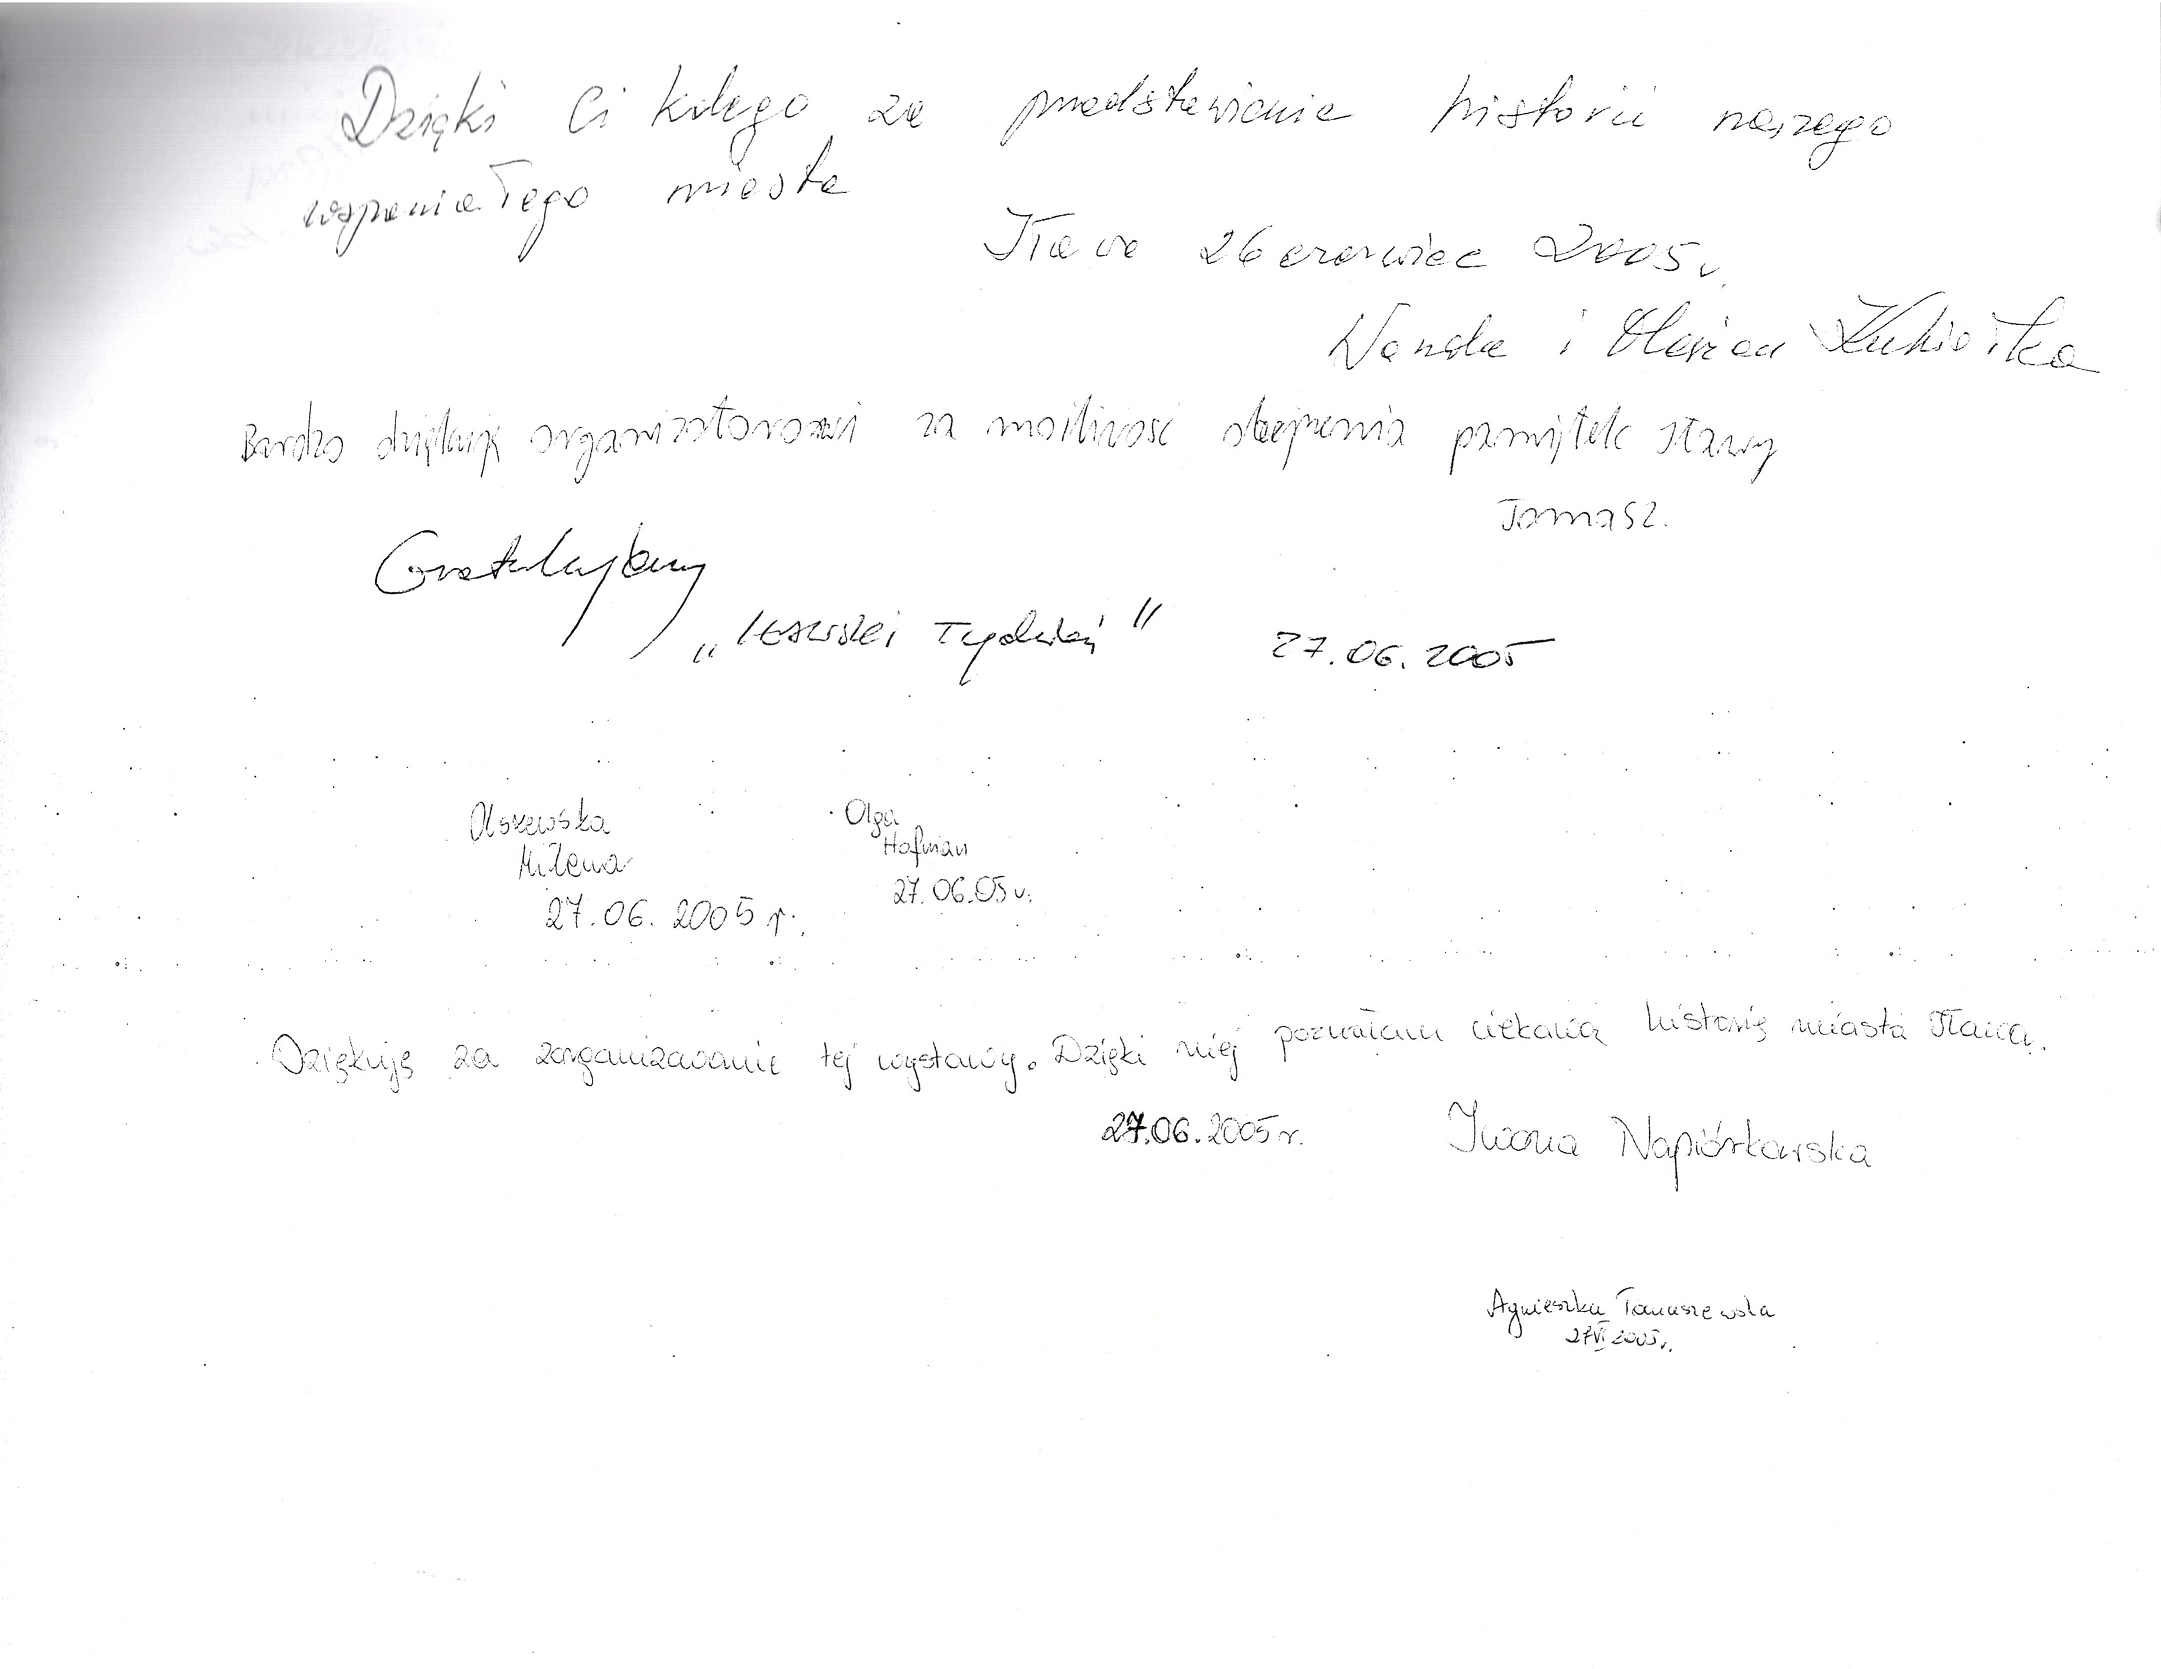 Dzięki Ci kolego za przedstawienie historii naszego
wspaniałego miasta
Iława 26 czerwiec 2005r.
Wanda i Marian
Bardzo dziękuję organizatorowi za możliwość obejrzenia pamiątek Iławy
Tomasz.
Gratulujemy
„Iławski Tydzień"
27.06.2005
Olszewska
Milena
27.06.2005 r.
Olga
Hofman
27.06.05 r.
Dziękuję za zorganizowanie tej wystawy. Dzięki niej poznałam ciekawią historię miasta Iława.
27.06.2005 r.
Iwona Napiórkowska
Agnieszka Tomaszewska
27 VI 2005r.